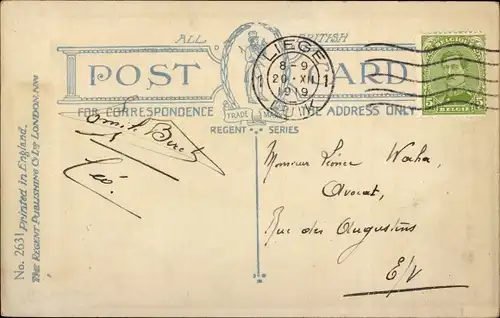 ALL BRITISH
POST CARD
FOR CORRESPONDENCE THE ADDRESS ONLY
TRADE MARK
REGENT SERIES
LIEGE
1 8-9 1
20 XII
1919
LUIK
BELGIQUE
5 5
BELGIË
Léo.
Monsieur Léonce Waha,
Avocat,
Rue des Augustins
E/V
No. 2631 Printed in England.
THE REGENT PUBLISHING Co Ld LONDON. NW